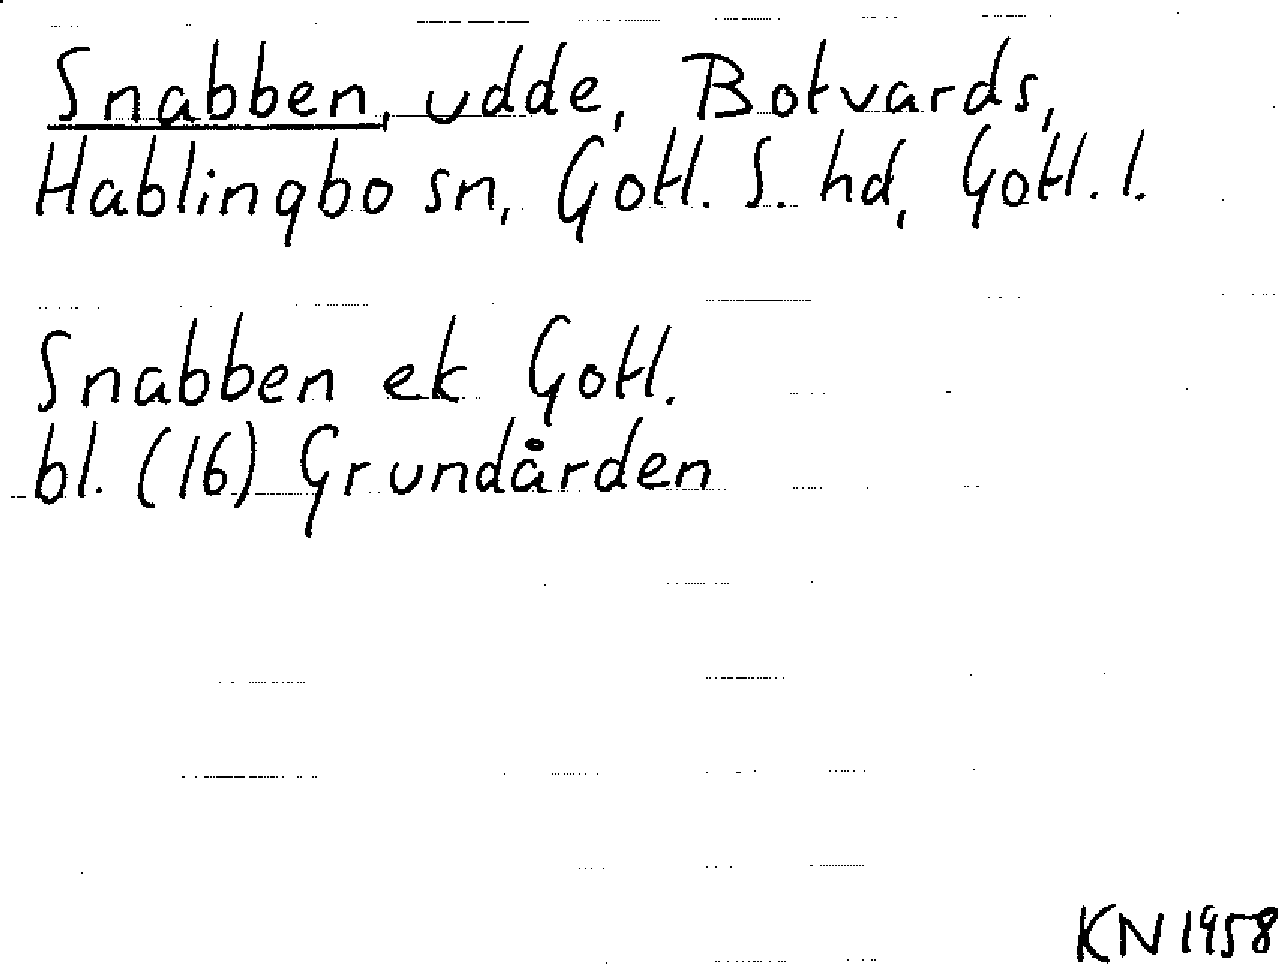 Snabben, udde, Botvards,
Hablingbo sn, Gotl. S. hd, Gotl. l.
Snabben ek Gotl.
bl. (16) Grundården
KN 1958